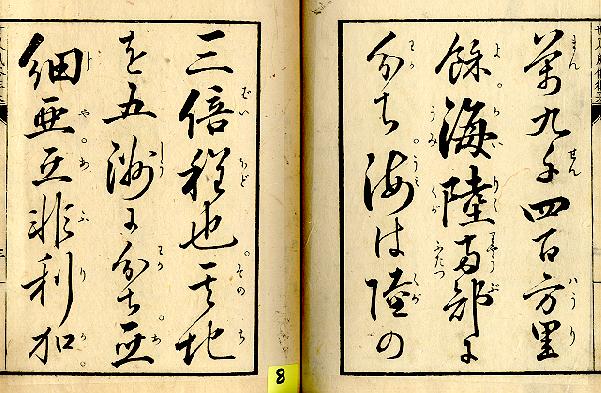 萬九千四百方里
餘。海陸両部に
分ち。海は陸の
三倍程也。其地
を五洲に分ち。亜
細亜。亜非利加。